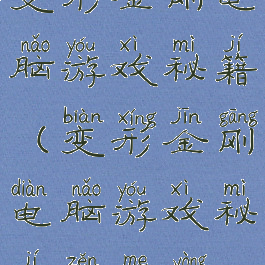 变形金刚电
nǎo yóu xì mì jí
脑游戏秘籍
biàn xíng jīn gāng
（变形金刚
diàn nǎo yóu xì mì
电脑游戏秘
jí zěn me yòng